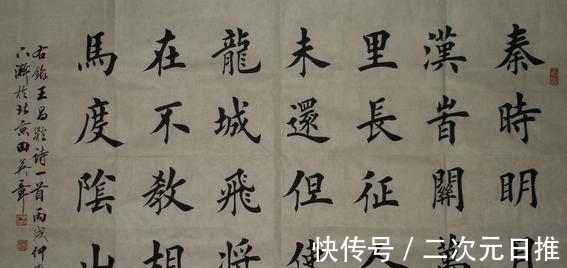 秦時明月
漢旹關萬
里長征人
未還但使
龍城飛將
在不教胡
馬度陰山
右錄王昌齡詩一首丙戌仲
於北京田英章
快传号 / 二次元日推